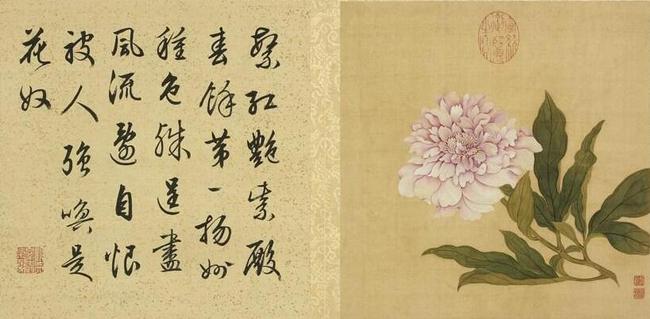 繁紅艷紫殿
春餘第一揚州
種色殊逞盡
風流自恨
被人強喚是
花奴